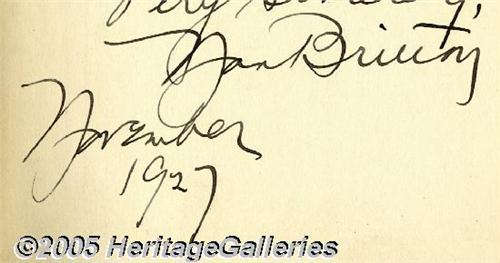 Very Sincerely,
Nan Britton
November
1927
©2005 HeritageGalleries